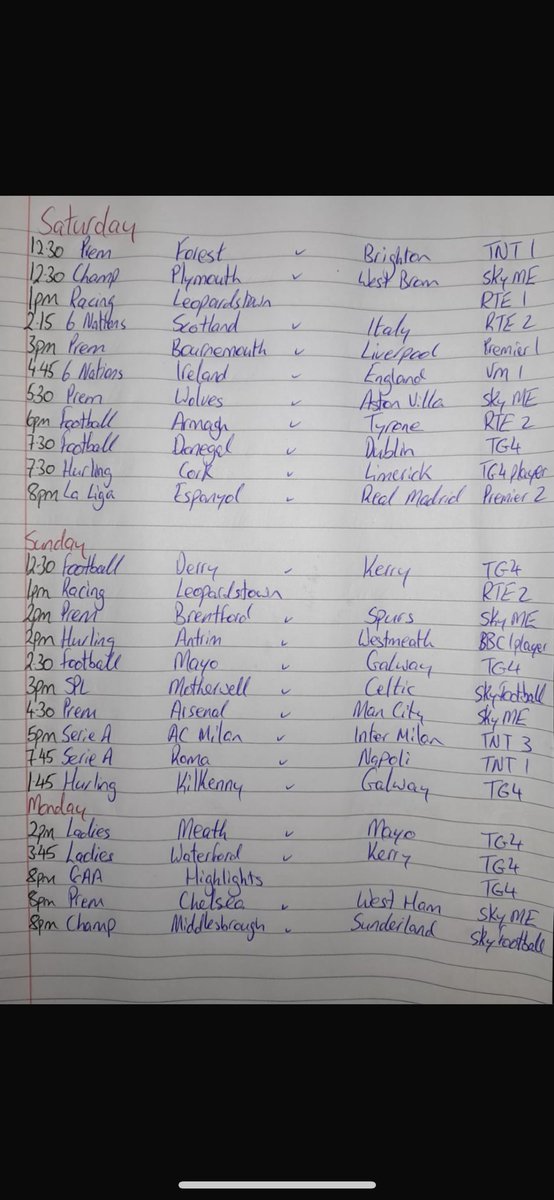 Saturday
12:30 Prem Forest v Brighton TNT 1
12:30 Champ Plymouth v West Brom Sky ME
1pm Racing Leopardstown RTE 1
2:15 6 Nations Scotland v Italy RTE 2
3pm Prem Bournemouth v Liverpool Premier 1
4:45 6 Nations Ireland v England VM 1
5:30 Prem Wolves v Aston Villa Sky ME
6pm Football Armagh v Tyrone RTE 2
7:30 Football Donegal v Dublin TG4
7:30 Hurling Cork v Limerick TG4 player
8pm La Liga Espanyol v Real Madrid Premier 2
Sunday
12:30 Football Derry v Kerry TG4
1pm Racing Leopardstown RTE 2
2pm Prem Brentford v Spurs Sky ME
2pm Hurling Antrim v Westmeath BBC iplayer
2:30 Football Mayo v Galway TG4
3pm SPL Motherwell v Celtic Sky football
4:30 Prem Arsenal v Man City Sky ME
5pm Serie A AC Milan v Inter Milan TNT 3
7:45 Serie A Roma v Napoli TNT 1
1:45 Hurling Kilkenny v Galway TG4
Monday
2pm Ladies Meath v Mayo TG4
3:45 Ladies Waterford v Kerry TG4
8pm GAA Highlights TG4
8pm Prem Chelsea v West Ham Sky ME
8pm Champ Middlesbrough v Sunderland Sky football